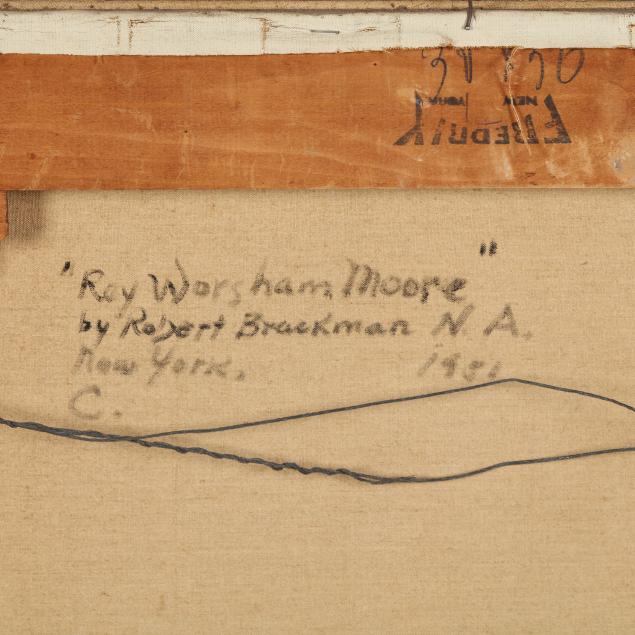 FREDRIX
NEW YORK
"Roy Worsham Moore"
by Robert Brackman N. A.
New York. 1951
C.